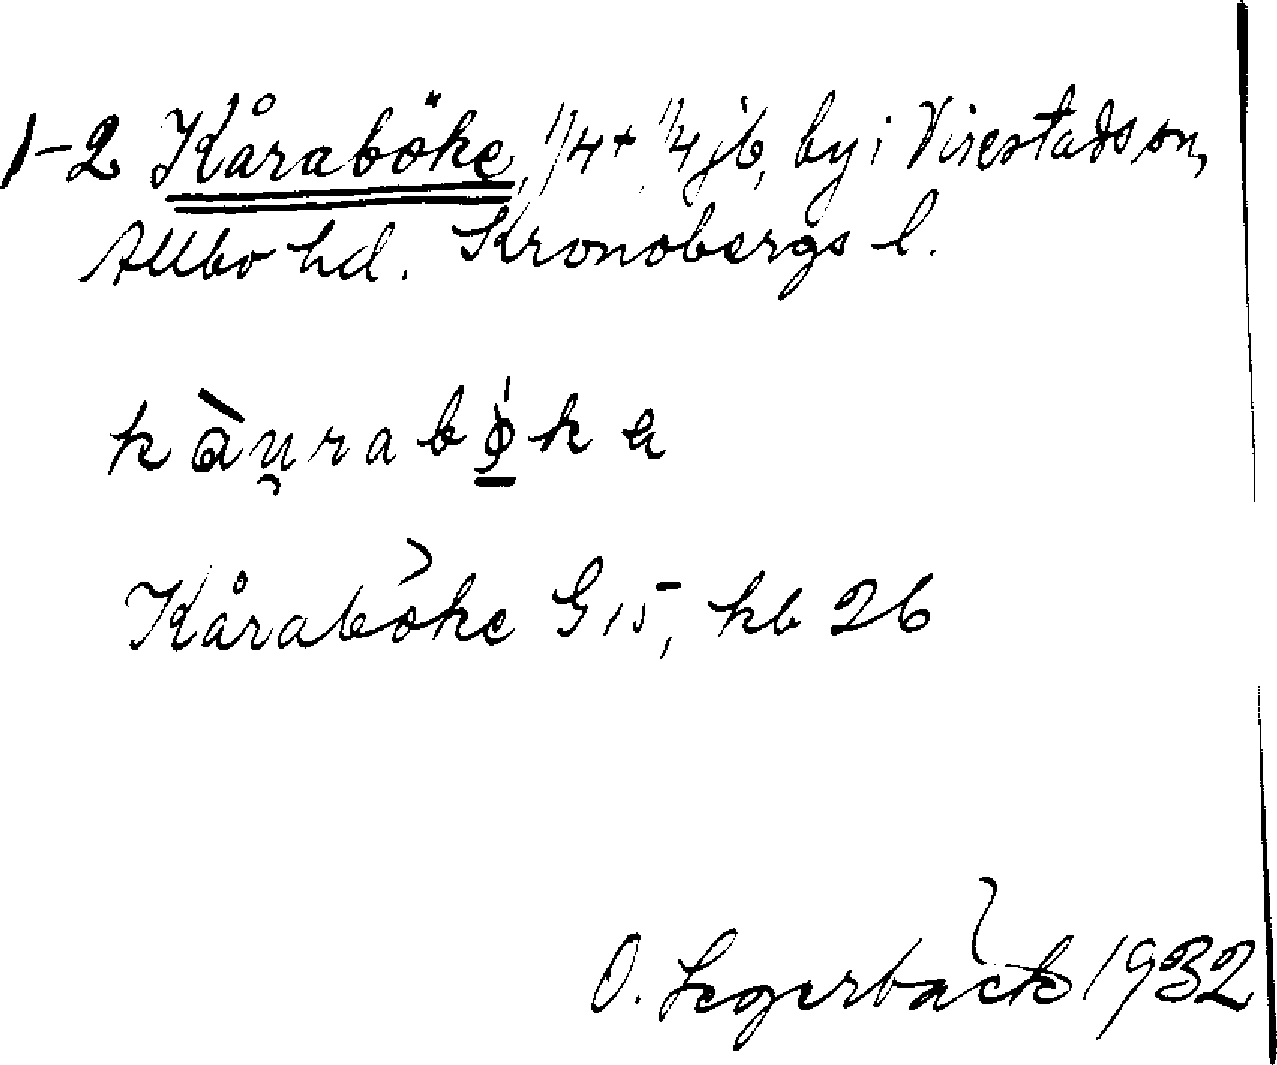 1-2 Kåraböke, 1/4 + 1/4 jb, by i Virestads sn,
Allbo hd. Kronobergs l.
kàu̯rabø̱̍kɐ
Kåraböke G 15, kb 26
O. Segerbäck 1932